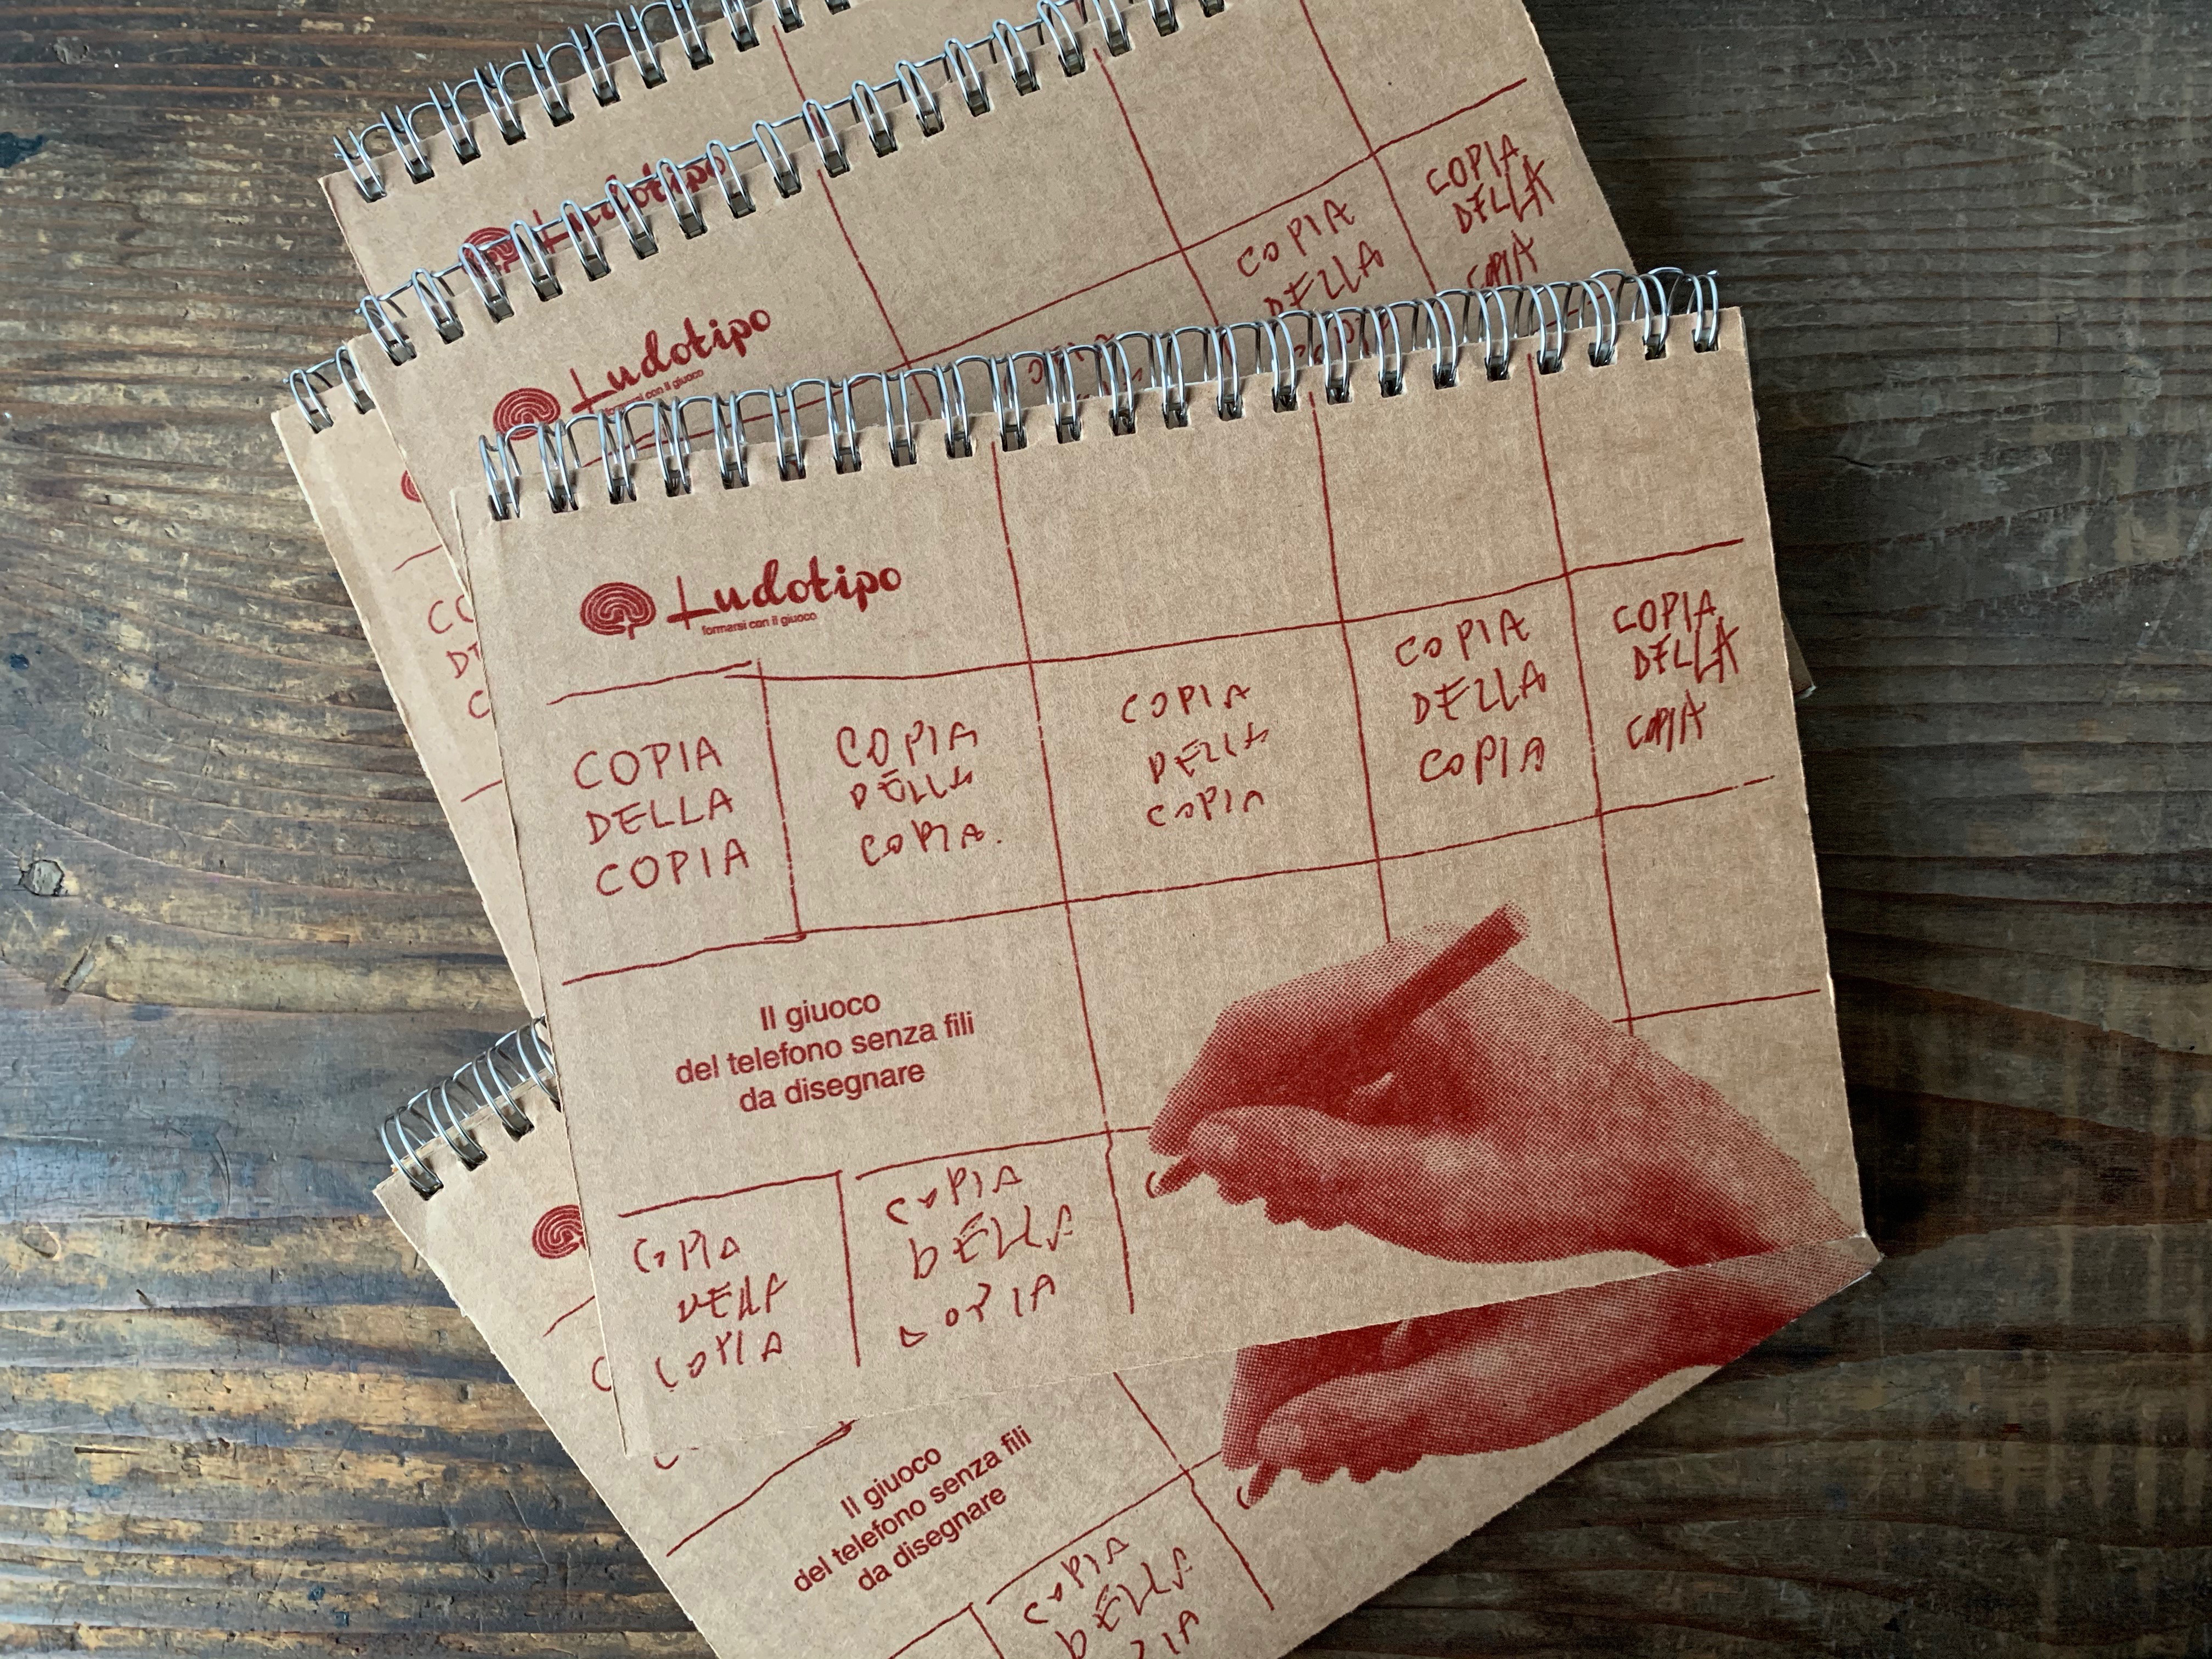 Ludotipo
Ludotipo
formarsi con il giuoco
COPIA
DELLA
COPIA
DELLA
COPIA
Ludotipo
formarsi con il giuoco
COPIA
DELLA
COPIA
COPIA
DELLA
COPIA.
COPIA
DELLA
COPIA
COPIA
DELLA
COPIA
COPIA
DELLA
COPIA
Il giuoco
del telefono senza fili
da disegnare
COPIA
DELLA
COPIA
COPIA
DELLA
COPIA
Il giuoco
del telefono senza fili
da disegnare
COPIA
DELLA